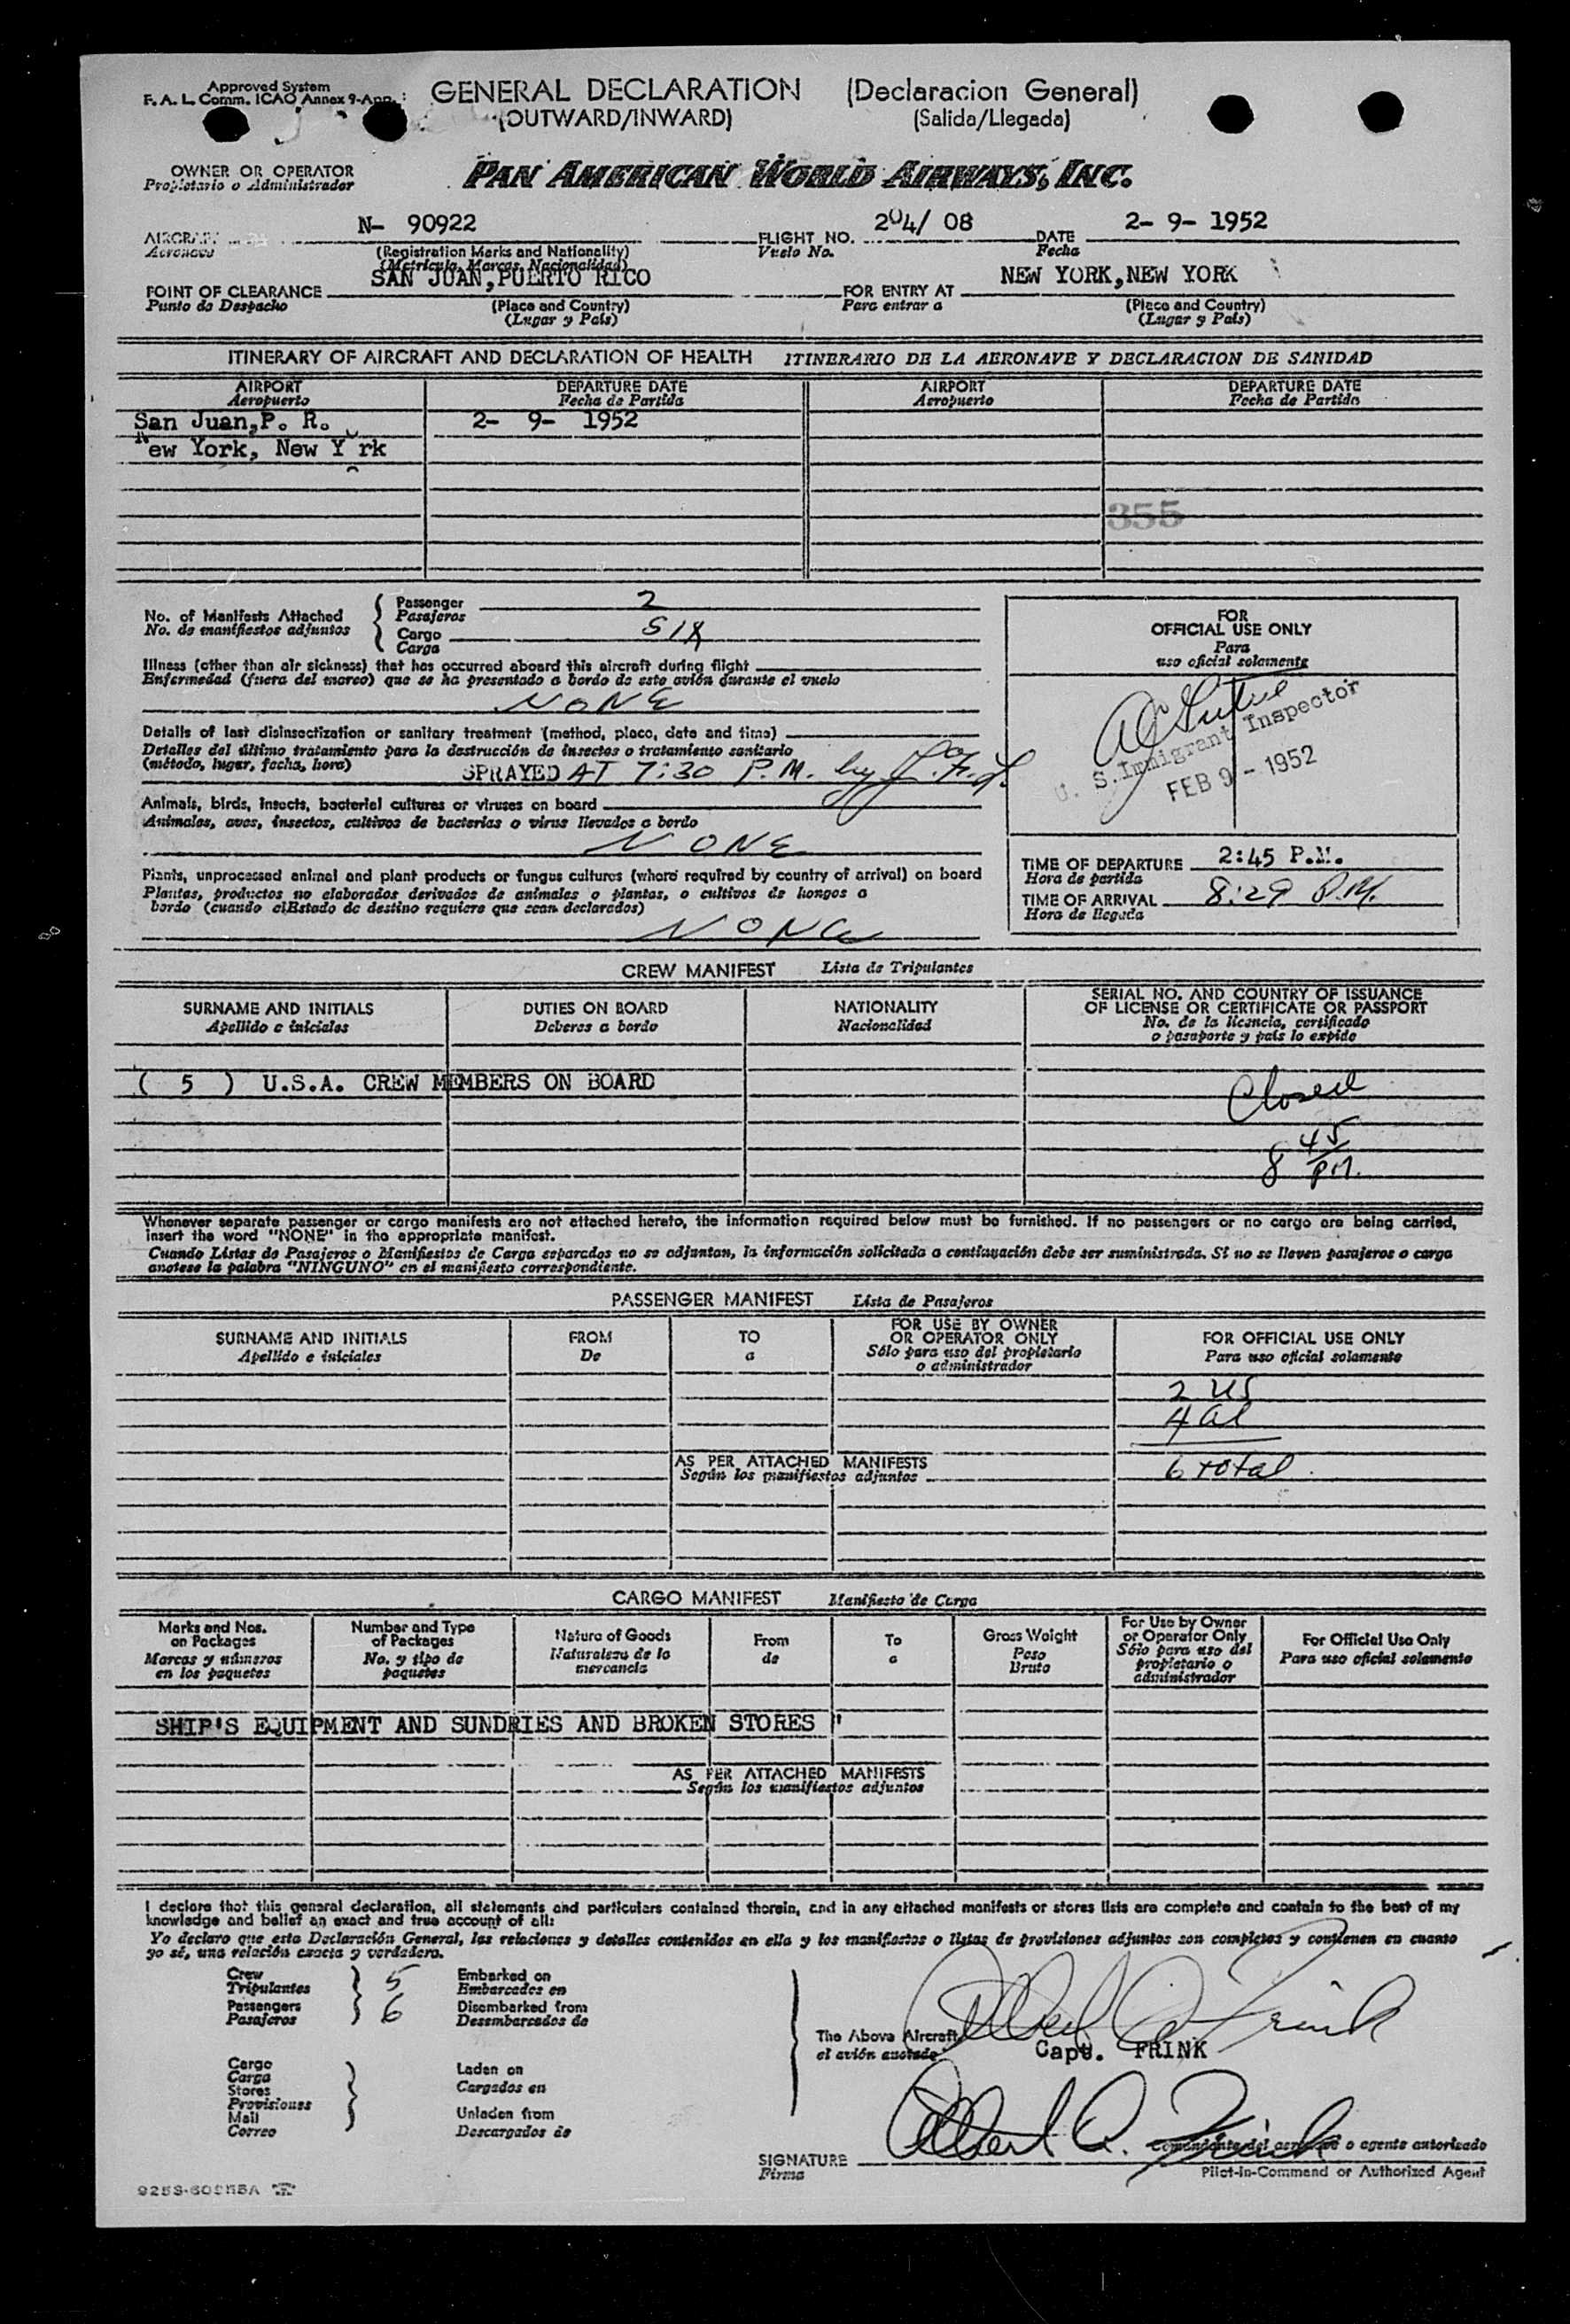 Approved System
F. A. L. Comm. ICAO Annex 9-App. :
GENERAL DECLARATION (Declaracion General)
(OUTWARD/INWARD) (Salida/Llegada)
OWNER OR OPERATOR
Propietario o Administrador
PAN AMERICAN WORLD AIRWAYS, INC.
AIRCRAFT N- 90922 FLIGHT NO. 204/ 08 DATE 2- 9- 1952
Aeronave (Registration Marks and Nationality) Vuelo No. Fecha
(Matricula, Marcas, Nacionalidad)
POINT OF CLEARANCE SAN JUAN,PUERTO RICO FOR ENTRY AT NEW YORK,NEW YORK
Punto de Despacho (Place and Country) Para entrar a (Place and Country)
(Lugar y País) (Lugar y País)
ITINERARY OF AIRCRAFT AND DECLARATION OF HEALTH ITINERARIO DE LA AERONAVE Y DECLARACION DE SANIDAD
AIRPORT DEPARTURE DATE AIRPORT DEPARTURE DATE
Aeropuerto Fecha de Partida Aeropuerto Fecha de Partida
San Juan,P. R. 2- 9- 1952
New York, New York
355
No. of Manifests Attached Passenger 2
No. de manifiestos adjuntos Pasajeros
Cargo SIX
Carga
Illness (other than air sickness) that has occurred aboard this aircraft during flight
Enfermedad (fuera del mareo) que se ha presentado a bordo de este avión durante el vuelo
NONE
Details of last disinsectization or sanitary treatment (method, place, date and time)
Detalles del último tratamiento para la destrucción de insectos o tratamiento sanitario
(método, lugar, fecha, hora) SPRAYED AT 7:30 P.M. by
Animals, birds, insects, bacterial cultures or viruses on board
Animales, aves, insectos, cultivos de bacterias o virus llevados a bordo
NONE
Plants, unprocessed animal and plant products or fungus cultures (where required by country of arrival) on board
Plantas, productos no elaborados derivados de animales o plantas, o cultivos de hongos a
bordo (cuando el Estado de destino requiere que sean declarados)
NONE
FOR
OFFICIAL USE ONLY
Para
uso oficial solamente
U. S. Immigrant Inspector
FEB 9 - 1952
TIME OF DEPARTURE 2:45 P.M.
Hora de partida
TIME OF ARRIVAL 8:29 P.M.
Hora de llegada
CREW MANIFEST Lista de Tripulantes
SURNAME AND INITIALS DUTIES ON BOARD NATIONALITY SERIAL NO. AND COUNTRY OF ISSUANCE
Apellido e iniciales Deberes a bordo Nacionalidad OF LICENSE OR CERTIFICATE OR PASSPORT
No. de la licencia, certificado
o pasaporte y país lo expide
( 5 ) U.S.A. CREW MEMBERS ON BOARD
Closed
8 45
PM.
Whenever separate passenger or cargo manifests are not attached hereto, the information required below must be furnished. If no passengers or no cargo are being carried,
insert the word "NONE" in the appropriate manifest.
Cuando Listas de Pasajeros o Manifiestos de Carga separados no se adjuntan, la información solicitada a continuación debe ser suministrada. Si no se lleven pasajeros o carga
anotese la palabra "NINGUNO" en el manifiesto correspondiente.
PASSENGER MANIFEST Lista de Pasajeros
SURNAME AND INITIALS FROM TO FOR USE BY OWNER OR OPERATOR ONLY FOR OFFICIAL USE ONLY
Apellido e iniciales De a Sólo para uso del propietario o administrador Para uso oficial solamente
2 US
4 al
AS PER ATTACHED MANIFESTS 6 total
Según los manifiestos adjuntos
CARGO MANIFEST Manifiesto de Carga
Marks and Nos. on Packages Number and Type of Packages Nature of Goods From To Gross Weight For Use by Owner or Operator Only For Official Use Only
Marcas y números en los paquetes No. y tipo de paquetes Naturaleza de la mercancia de a Peso Bruto Sólo para uso del propietario o administrador Para uso oficial solamente
SHIP'S EQUIPMENT AND SUNDRIES AND BROKEN STORES "
AS PER ATTACHED MANIFESTS
Según los manifiestos adjuntos
I declare that this general declaration, all statements and particulars contained therein, and in any attached manifests or stores lists are complete and contain to the best of my
knowledge and belief an exact and true account of all:
Yo declaro que esta Declaración General, las relaciones y detalles contenidos en ella y los manifiestos o listas de provisiones adjuntos son completos y contienen en cuanto
yo sé, una relación exacta y verdadera.
Crew 5 Embarked on
Tripulantes Embarcados en
Passengers 6 Disembarked from
Pasajeros Desembarcados de
The Above Aircraft Albert A. Frink
el avión anotado Capt. FRINK
Cargo Laden on
Carga Cargados en
Stores
Provisiones
Mail Unladen from
Correo Descargados de
SIGNATURE Albert A. Frink
Firma
Comandante del aeronave o agente autorizado
Pilot-in-Command or Authorized Agent